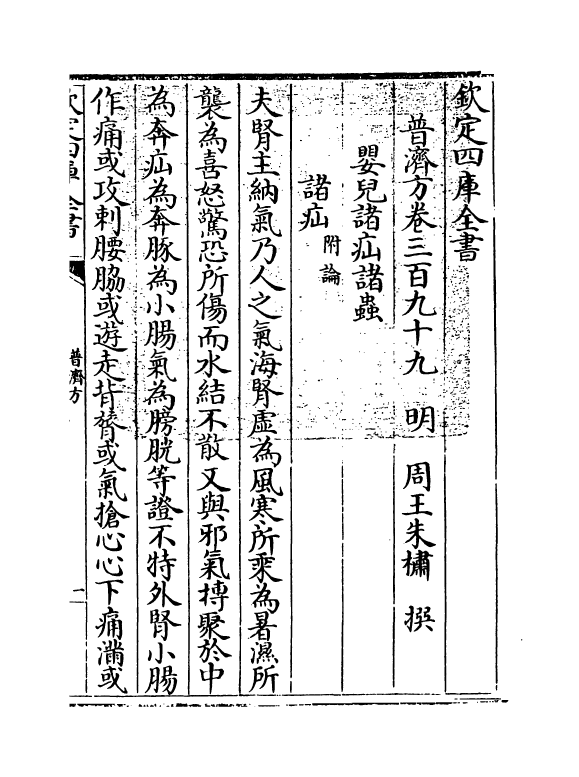 欽定四庫全書
普濟方卷三百九十九 明 周王朱橚 撰
嬰兒諸疝諸蟲
諸疝 附論
夫腎主納氣乃人之氣海腎虛為風寒所乘為暑濕所
襲為喜怒驚恐所傷而水結不散又與邪氣摶聚於中
為奔疝為奔豚為小腸氣為膀胱等證不特外腎小腸
作痛或攻刺腰脇或遊走背膂或氣搶心心下痛滿或
欽定四庫全書
普濟方